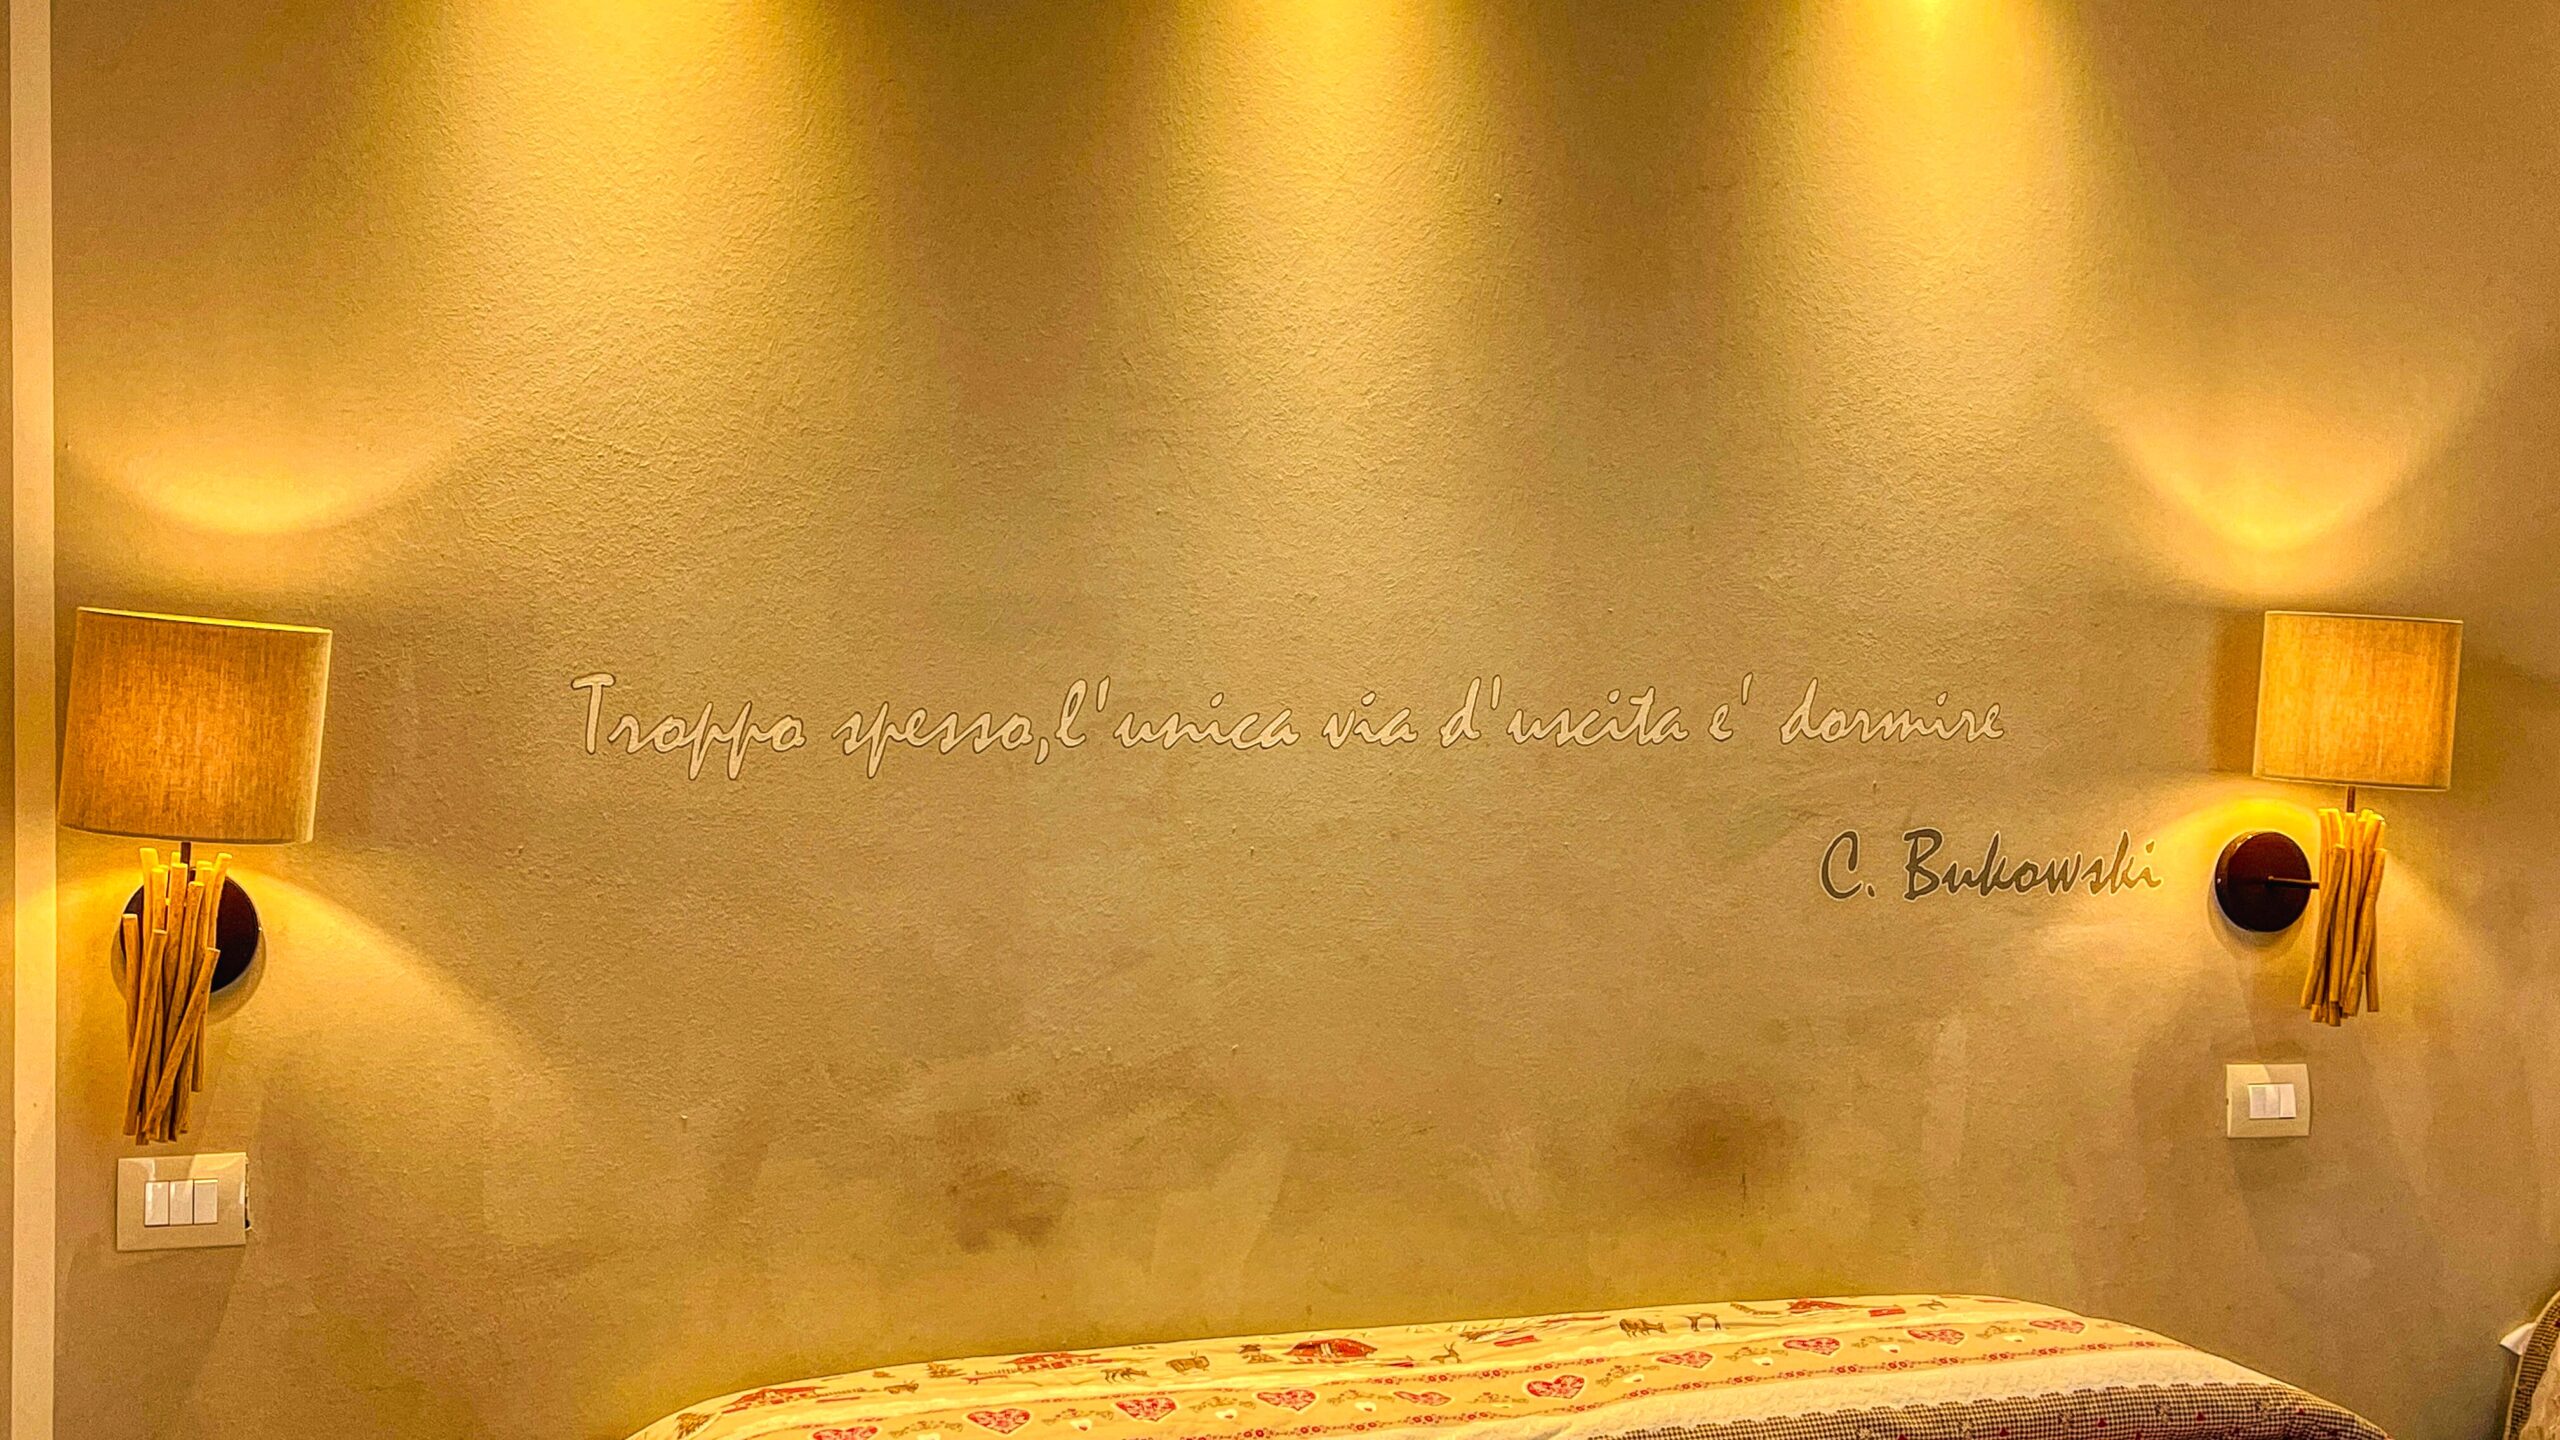 Troppo spesso,l'unica via d'uscita e' dormire
C. Bukowski